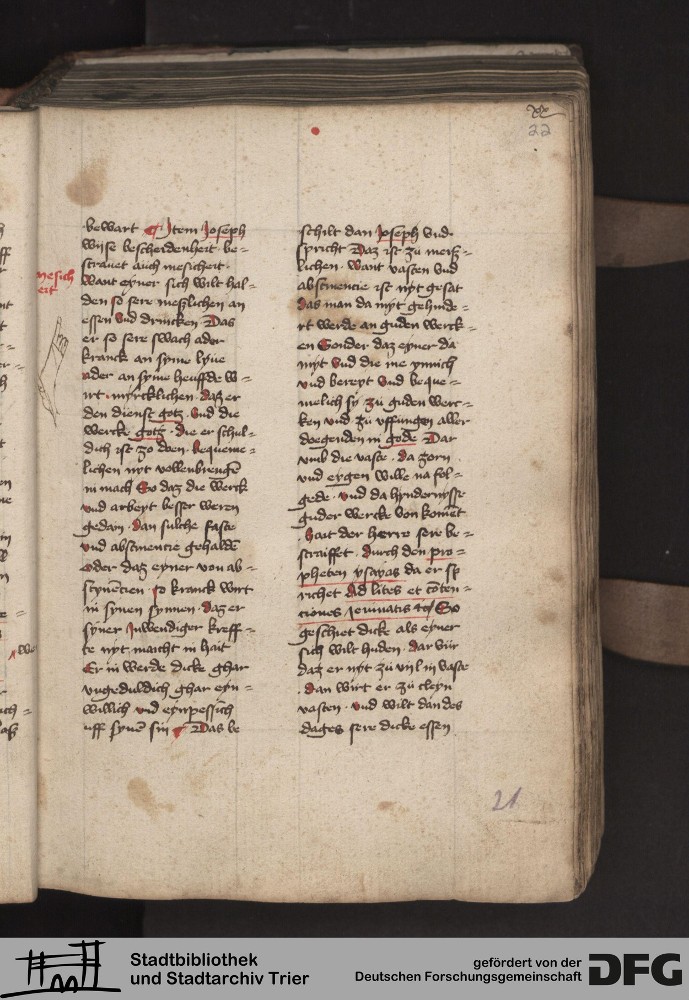 xx
22
bewart Jtem Joseph
wijse bescheidenhert be=
strauet auch mesichert
want eyner sich wilt hal=
den so sere meßlichen an
essen vnd drincken Das
er so sere swach ader
kranck an syme lyue
ader an syme heuffde w=
irt myrcklichen daz er
den dienst gotz vnd die
wercke gotz die er schul=
dich ist zo doen bequeme=
lichen nyt vollenbrengē
in mach So daz die werck
vnd arbeyt besser weren
gedan dan sulche faste
vnd abstinencie gehaldē
oder daz eyner von ab=
stynēcien so kranck wirt
in synen synnen daz er
syner Jnwendiger kreff=
te nyt macht in hait
Er in werde dicke ghar
vngeduldich ghar eyn=
willich vnd eynpessich
uff synē sin Das be
mesich
ert
schilt dan Joseph vnd
spricht Daz ist zu merk=
lichen want vasten vnd
abstinencie ist nyt gesat
das man da myt gehinde=
rt werde an guden werck=
en Sonder daz eyner da
myt vnd die me ynnich
vnd bereyt vnd beque=
melich sy zu guden werc=
ken vnd zu vffungen aller
doegenden in gode Dar
vmb die vaste da zorn
vnd eygen wille na fol=
gede vnd da hyndernysse
guder wercke von komēt
hait der herre sere be=
straiffet durch den pro=
pheten ysayas da er sp
richet Ad lites et cōten=
ciones ieiunatis &c So
geschiet dicke als eyner
sich wilt huden dar vur
daz er nyt zu vijl in vaste
dan wirt er zu cleyn
vasten vnd wilt dan des
dages sere dicke essen
21
Stadtbibliothek
und Stadtarchiv Trier
gefördert von der
Deutschen Forschungsgemeinschaft
DFG